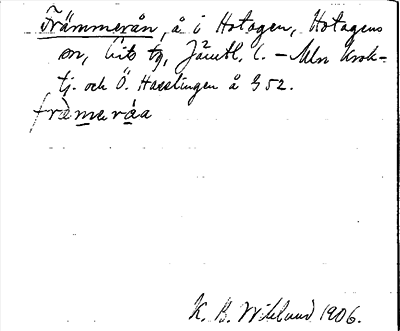 Främmerån, å i Hotagen, Hotagens
sn, Lits tg, Jämtl. l. – Mln Krok-
tj. och Ö. Hasslingen å G 52.
främeråa
K. B. Wiklund 1906.